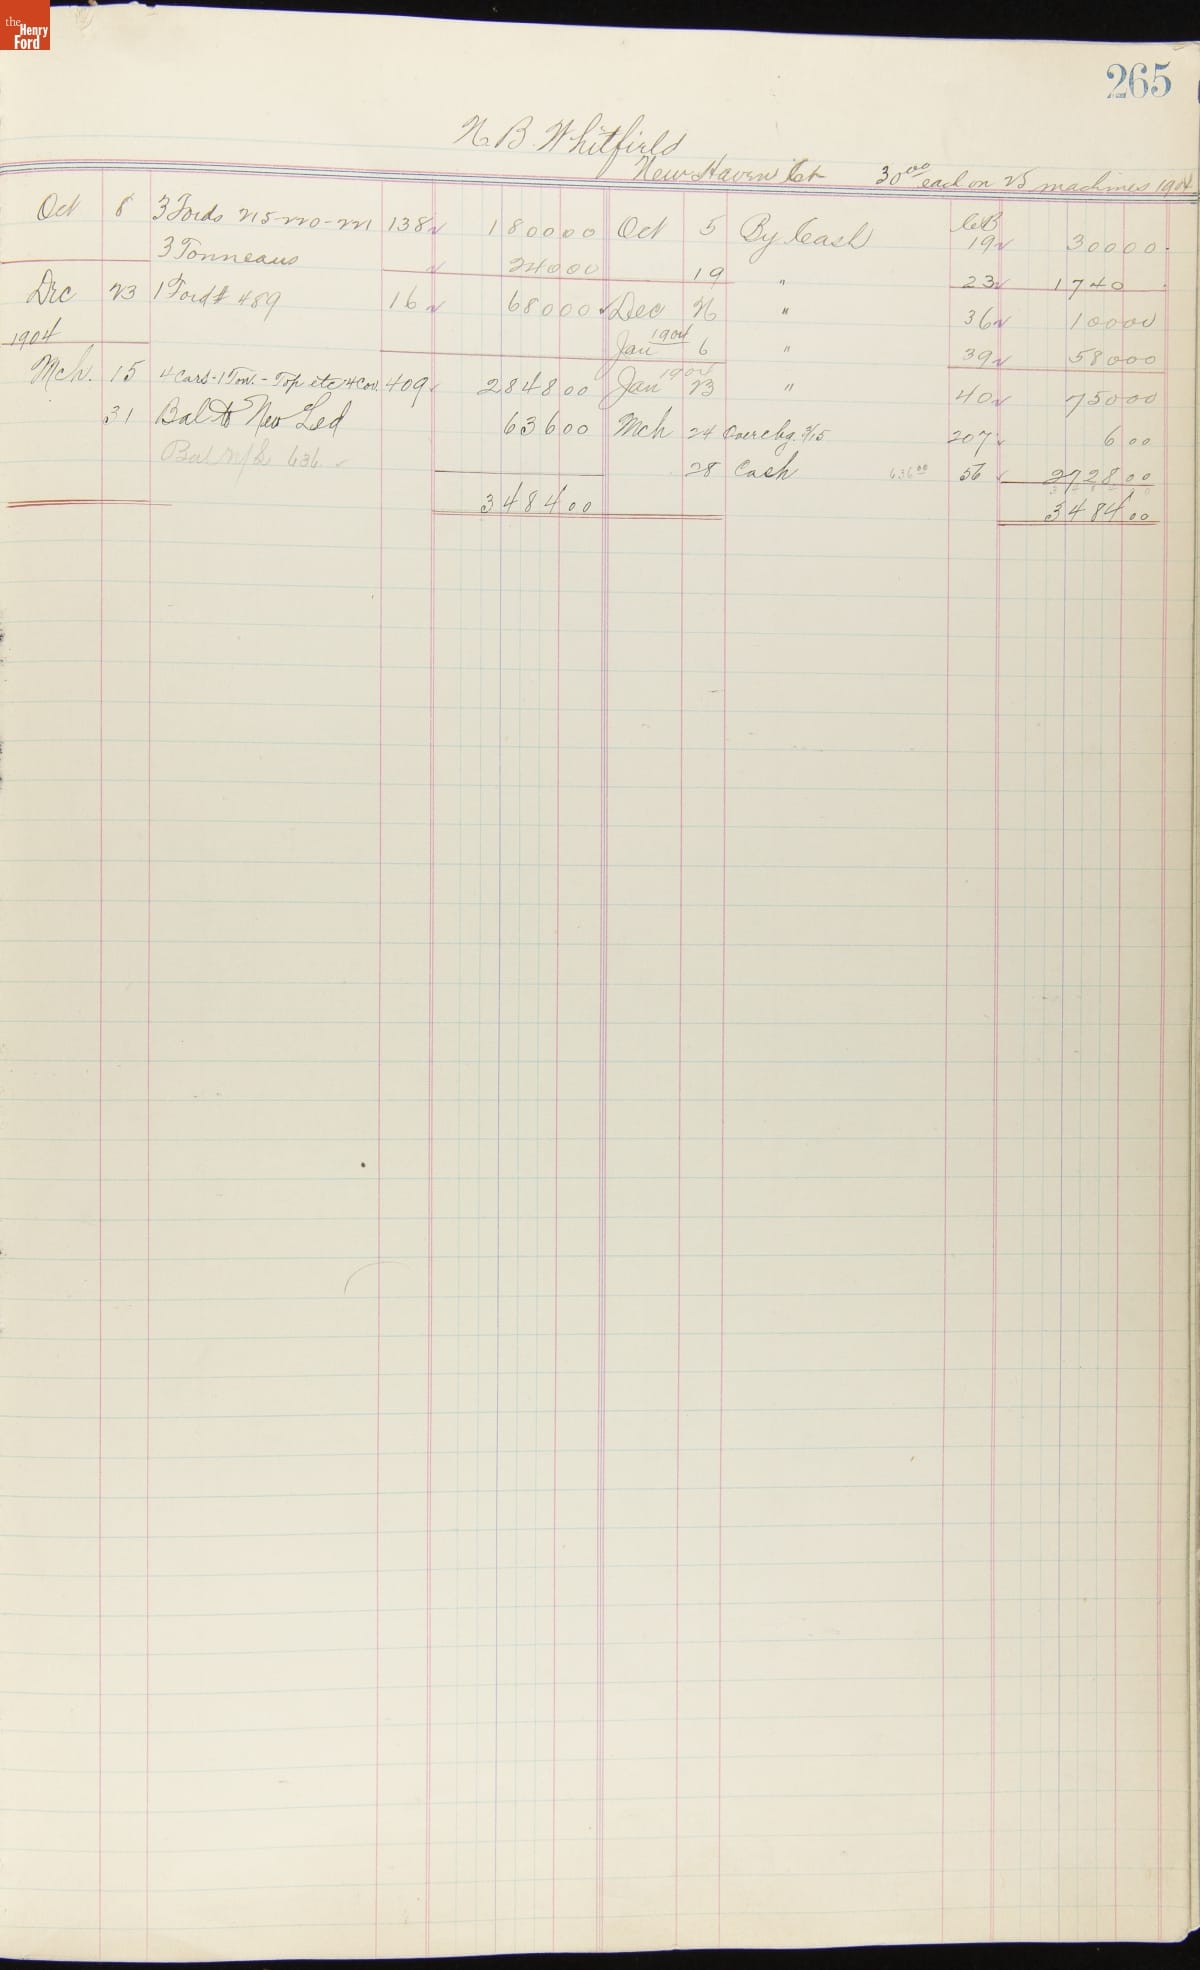 the Henry Ford
265
N. B. Whitfield
New Haven Ct 30 00 each on 25 machines 1904
Oct 8 3 Fords 215-220-221 138 1800 00 Oct 5 By Cash CB 19 300 00
3 Tonneaus 240 00 19 " 23 1740
Dec 23 1 Ford # 489 16 680 00 Dec 26 " 36 100 00
1904 Jan 1904 6 " 39 580 00
Mch. 15 4 Cars - 1 Ton. - Top etc 4 Cov. 409 2848 00 Jan 1904 23 " 40 750 00
31 Bal to New Led 636 00 Mch 24 Overchg. 3/15 207 6 00
Bal 636 28 Cash 636 00 56 2728 00
3484 00 3484 00